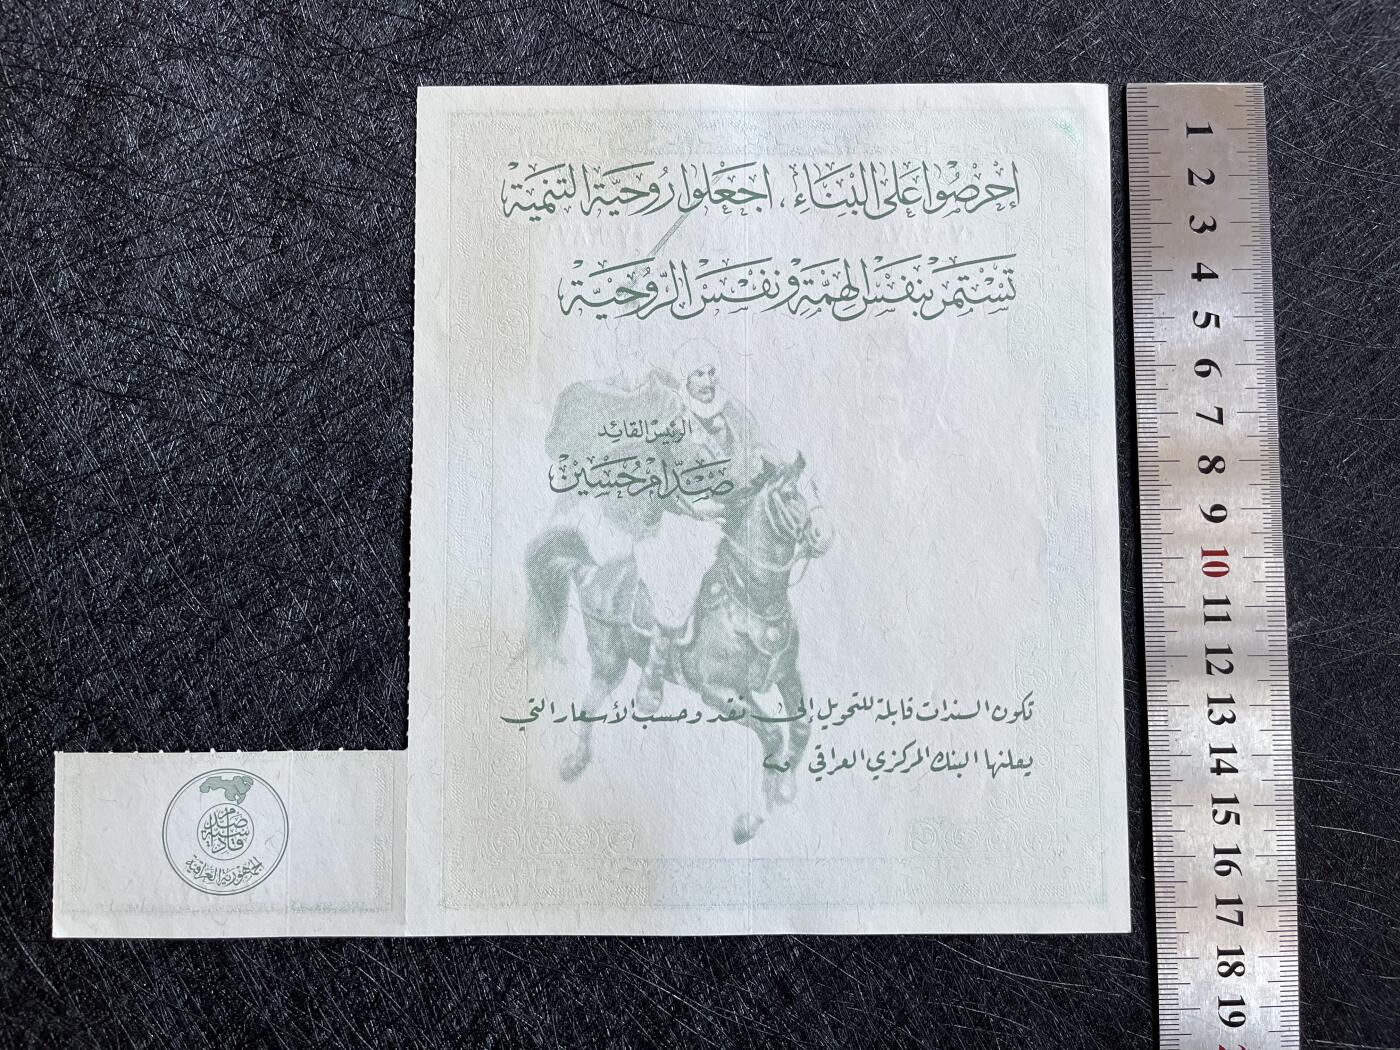 اِحْرِصُوا عَلى البْنَاءِ ، اِجعَلوا رُوحيَّة التنميَة
تَسْتَمرّ بنفسْ الهِمَّةِ ونفسْ الرّوُحيَّة
الرئيسْ القائِد
صَدّام حُسَيْن
تكون السندات قابلة للتحويل إلى نقد وحسب الأسعار التي
يعلنها البنك المركزي العراقي
قادسية صدام
الجمهورية العراقية
1
2
3
4
5
6
7
8
9
10
11
12
13
14
15
16
17
18
19